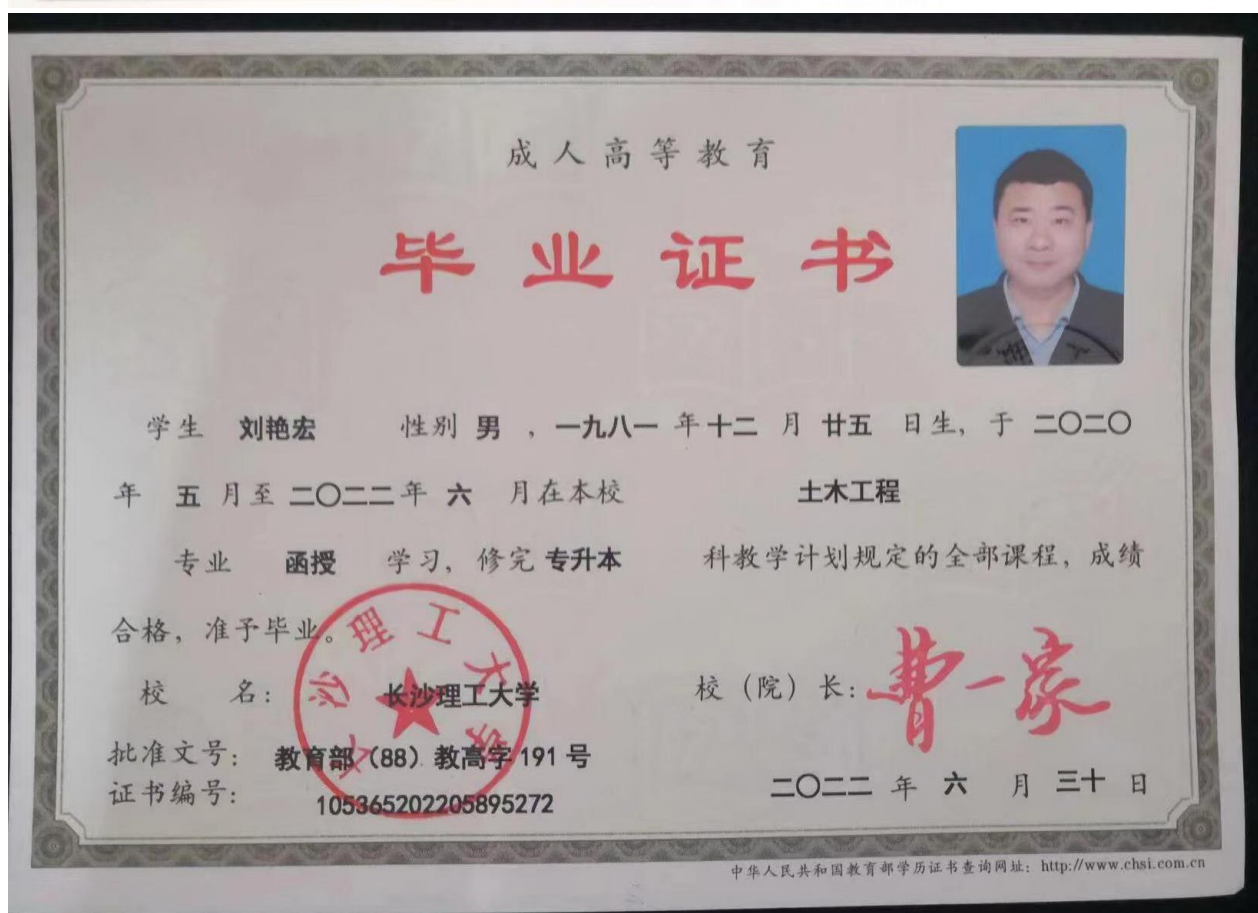 成人高等教育
毕业证书
学生 刘艳宏 性别 男 ,一九八一 年 十二 月 廿五 日生, 于 二〇二〇
年 五 月至 二〇二二 年 六 月在本校 土木工程
专业 函授 学习, 修完 专升本 科教学计划规定的全部课程, 成绩
合格, 准予毕业。
长沙理工大学
校 名: 长沙理工大学
校（院）长: 曹一家
批准文号: 教育部（88）教高字 191 号
证书编号: 105365202205895272
二〇二二 年 六 月 三十 日
中华人民共和国教育部学历证书查询网址: http://www.chsi.com.cn